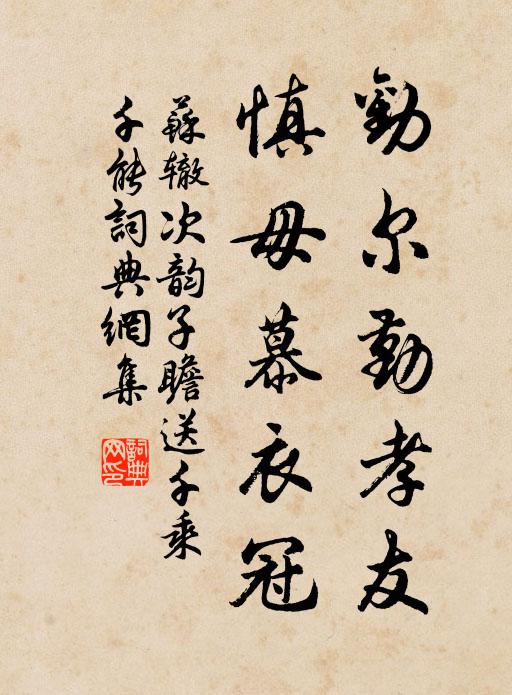 勸尔勤孝友
慎毋慕衣冠
蘇辙次韵子瞻送千乘
千能詞典網集
詞典网印